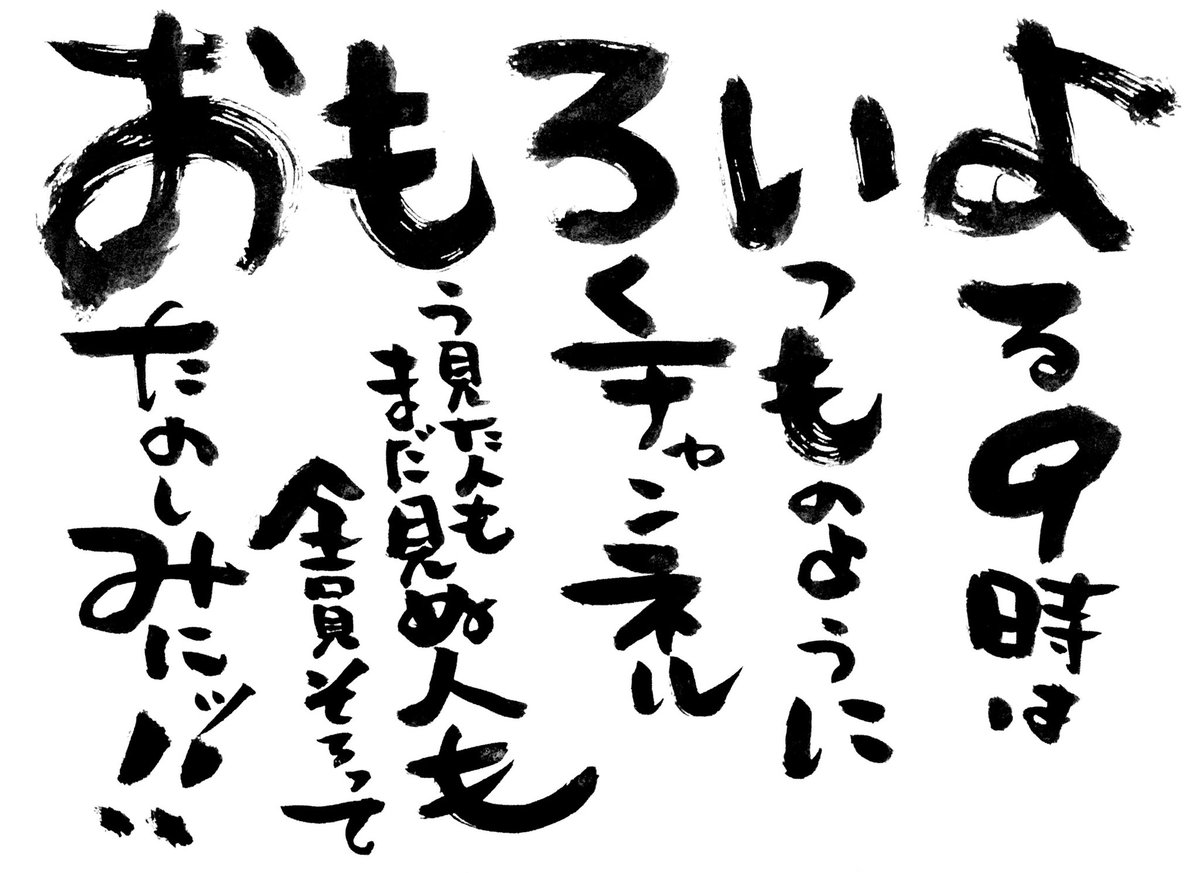 よる9時は
いつものように
ろくチャンネル
もう見た人も
まだ見ぬ人も
全員そろって
おたのしみにッ!!